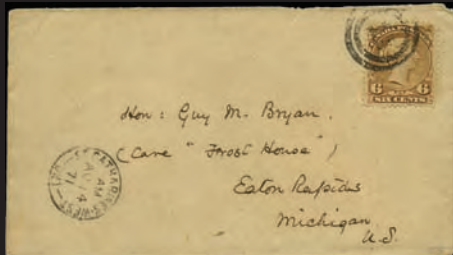 6 6
SIX CENTS
Hon: Guy M. Bryan.
(Care "Frost House")
Eaton Rapids
Michigan
U.S.
AM
14
71